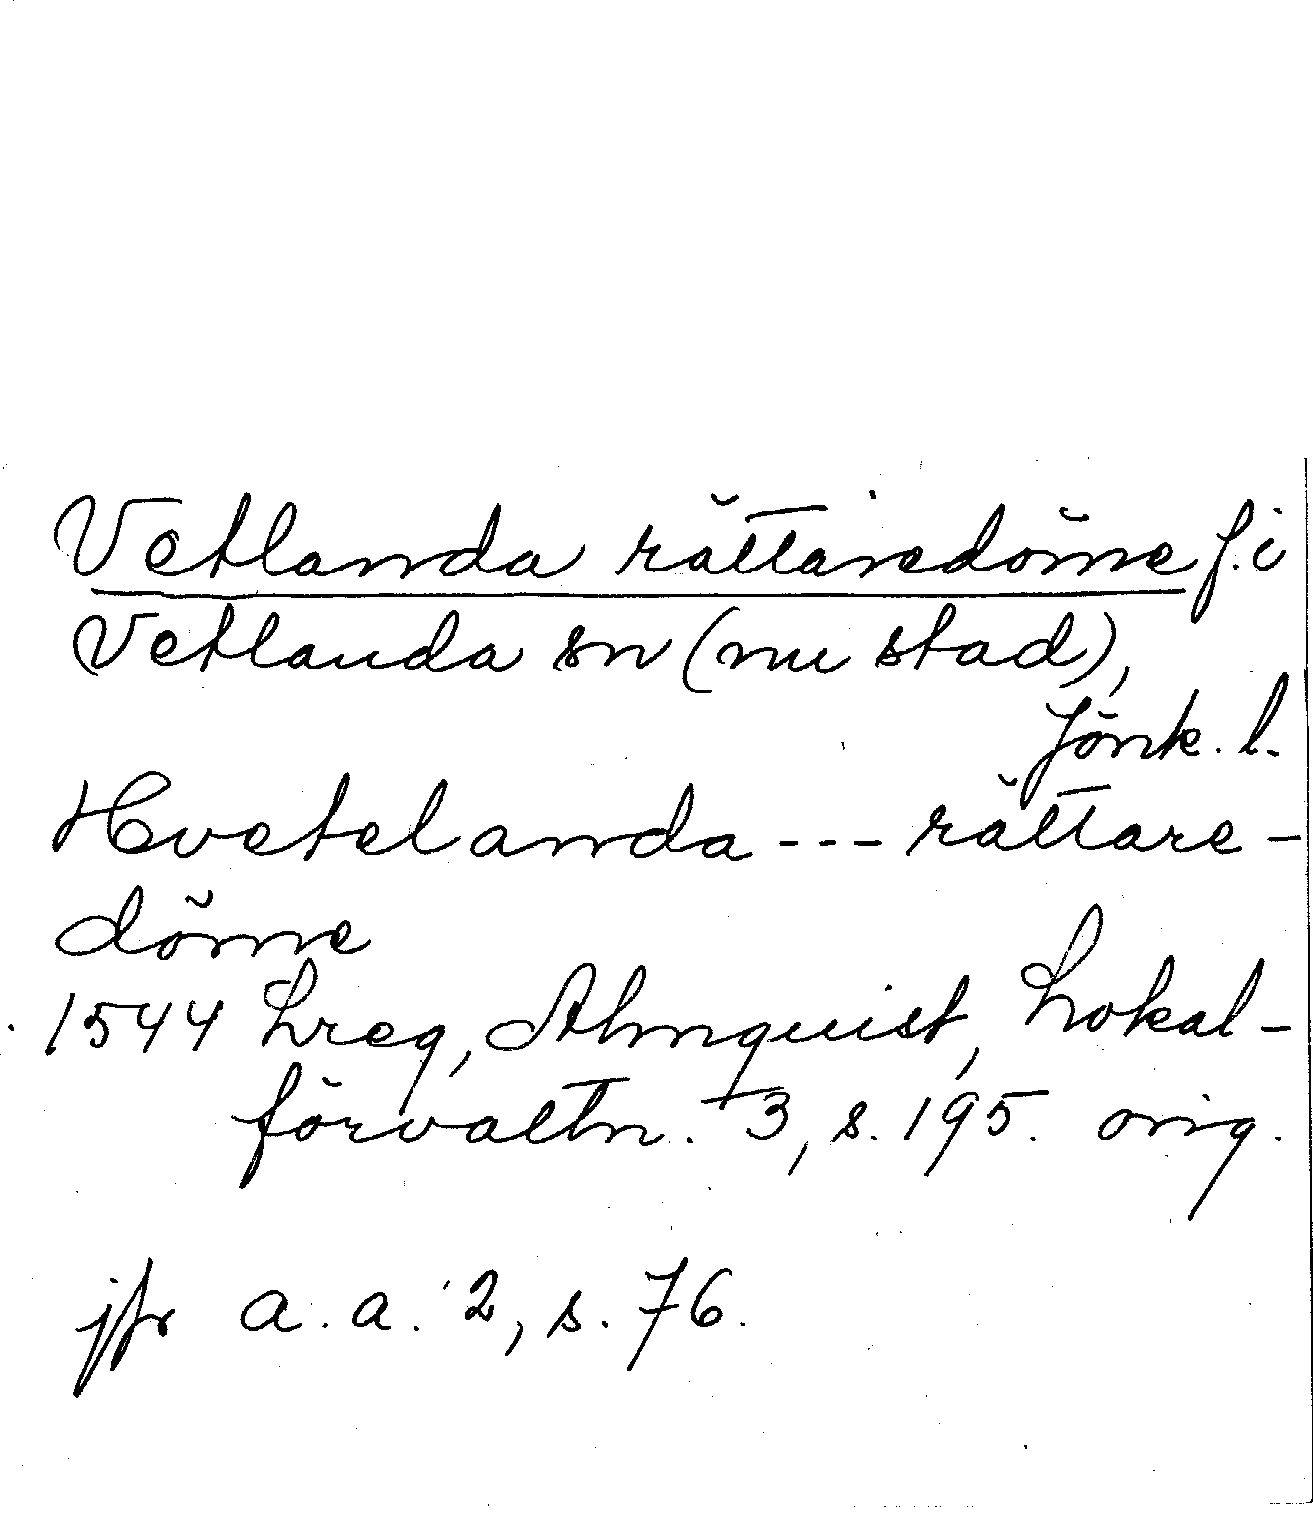 Vetlanda rättaredöme f. i
Vetlanda sn (nu stad),
Jönk. l.
Hvetelanda --- rättare-
döme
1544 Lreg, Almquist, Lokal-
förvaltn. 3, s. 195. orig.
jfr a. a. 2, s. 76.